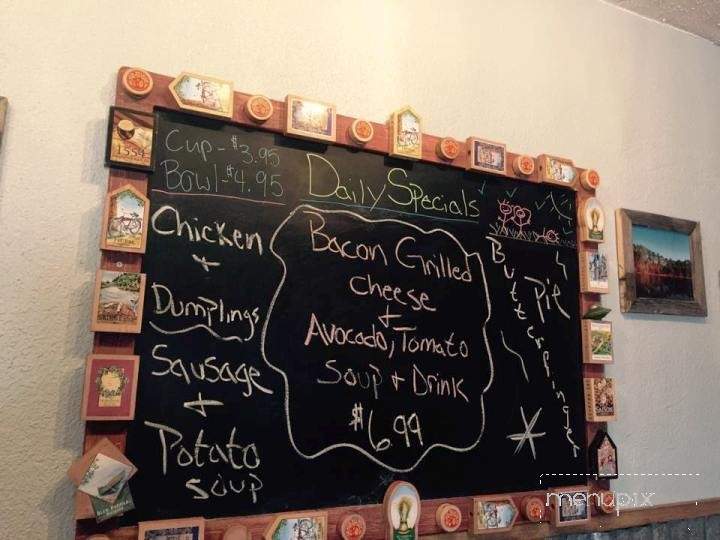 Cup - $3.95
Bowl - $4.95
Chicken
+
Dumplings
Sausage
+
Potato
Soup
Daily Specials
Bacon Grilled
cheese
+
Avocado, Tomato
Soup + Drink
$6.99
Butterfinger
Pie
1554
menupix